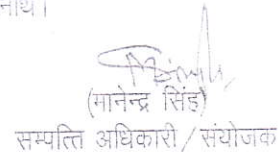 नाथ।
(मानेन्द्र सिंह)
सम्पत्ति अधिकारी / संयोजक